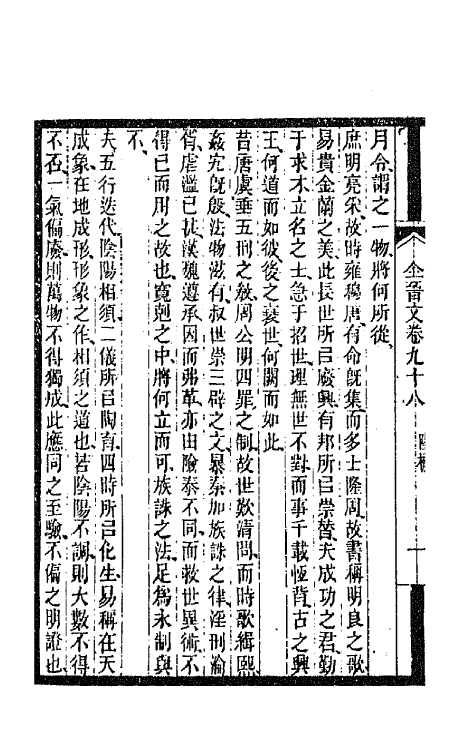 全晉文卷九十八
陸機
一
月令謂之一物將何所從
庶明亮采故時雍穆唐有命旣集而多士隆周故書稱明良之歌
易貴金蘭之美此長世所㠯廢興有邦所㠯崇替夫成功之君勤
于求才立名之士急于招世理無世不對而事千載恆背古之興
王何道而如彼後之衰世何闕而如此
昔唐虞垂五刑之敎周公明四罪之制故世歎淸問而時歌緝熙
姦宄旣殷法物滋有叔世崇三辟之文暴秦加族誅之律淫刑淪
胥虐濫已甚漢魏遵承因而弗革亦由險泰不同而救世異術不
得已而用之故也寬剋之中將何立而可族誅之法足爲永制與
不
夫五行迭代陰陽相須二儀所㠯陶育四時所㠯化生易稱在天
成象在地成形形象之作相須之道也若陰陽不調則大數不得
不否一氣偏廢則萬物不得獨成此應同之至驗不偏之明證也